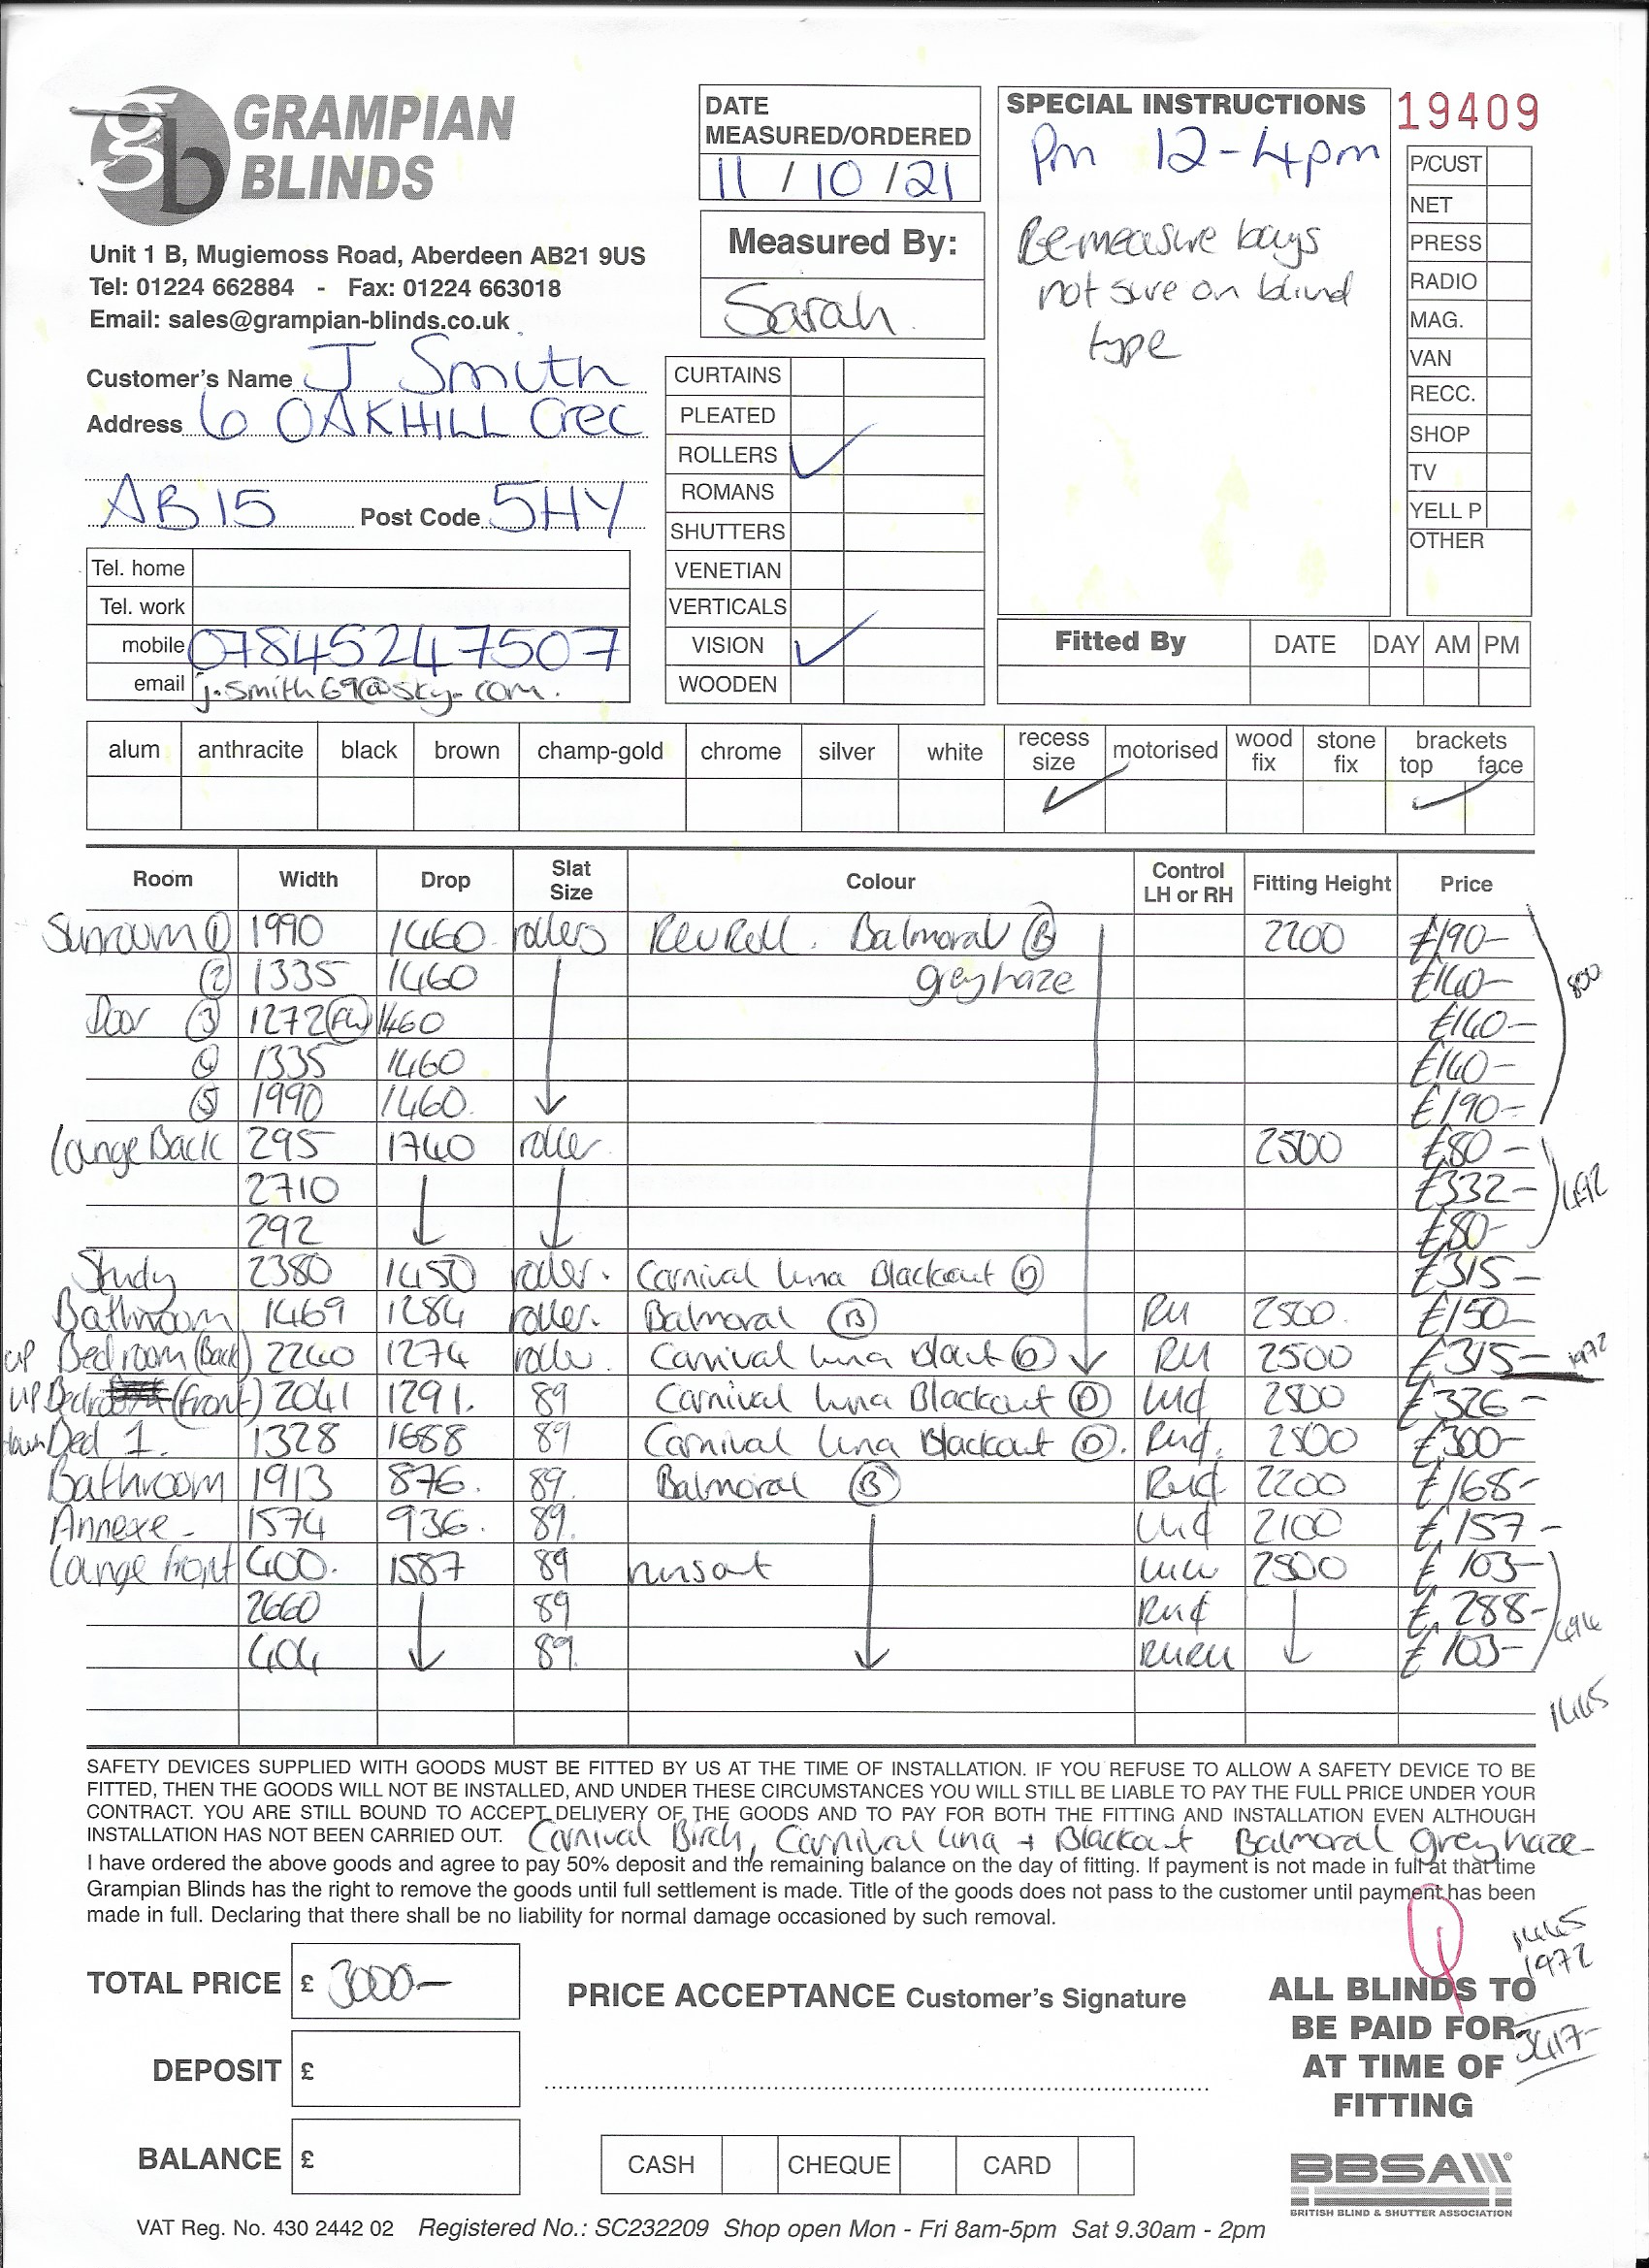 GRAMPIAN
BLINDS
Unit 1 B, Mugiemoss Road, Aberdeen AB21 9US
Tel: 01224 662884 - Fax: 01224 663018
Email: sales@grampian-blinds.co.uk
Customer's Name J Smith
Address 6 OAKHILL Crec
AB15 Post Code 5HY
Tel. home
Tel. work
mobile 07845247507
email j.smith69@sky.com.
DATE
MEASURED/ORDERED
11 / 10 / 21
Measured By:
Sarah
CURTAINS
PLEATED
ROLLERS ✓
ROMANS
SHUTTERS
VENETIAN
VERTICALS
VISION ✓
WOODEN
SPECIAL INSTRUCTIONS
Pm 12-4pm
Re-measure bays
not sure on blind
type
19409
P/CUST
NET
PRESS
RADIO
MAG.
VAN
RECC.
SHOP
TV
YELL P
OTHER
Fitted By DATE DAY AM PM
alum anthracite black brown champ-gold chrome silver white recess size motorised wood fix stone fix brackets top face
✓ ✓
Room Width Drop Slat Size Colour Control LH or RH Fitting Height Price
Sunroom ① 1990 1460 rollers Balmoral Ⓑ 2200 £190-
② 1335 1460 greyhaze £140- 800
Door ③ 1272 1460 £140-
④ 1335 1460 £140-
⑤ 1990 1460. £190-
Lounge Back 295 1740 roller. 2500 £80-
2710 £332- 492
292 £80-
Study 2380 1450 roller. Carnival Luna Blackout Ⓓ £315-
Bathroom 1469 1284 roller. Balmoral Ⓑ RH 2500. £150-
up Bedroom (Back) 2240 1274 roller. Carnival Luna Ⓓ RH 2500 £315- 1972
up (front) 2041 1291. 89 Carnival Luna Blackout Ⓓ 2500 £326-
Bed 1. 1328 1688 89 Carnival Luna Blackout Ⓓ. 2500 £300-
Bathroom 1913 876. 89. Balmoral Ⓑ 2200 £168-
Annexe - 1574 936. 89. 2100 £157-
Lounge front 400. 1587 89 2500 £103-
2660 89 £288- 494
404 89. £103-
1445
SAFETY DEVICES SUPPLIED WITH GOODS MUST BE FITTED BY US AT THE TIME OF INSTALLATION. IF YOU REFUSE TO ALLOW A SAFETY DEVICE TO BE
FITTED, THEN THE GOODS WILL NOT BE INSTALLED, AND UNDER THESE CIRCUMSTANCES YOU WILL STILL BE LIABLE TO PAY THE FULL PRICE UNDER YOUR
CONTRACT. YOU ARE STILL BOUND TO ACCEPT DELIVERY OF THE GOODS AND TO PAY FOR BOTH THE FITTING AND INSTALLATION EVEN ALTHOUGH
INSTALLATION HAS NOT BEEN CARRIED OUT. Carnival Birch, Carnival Luna + Blackout Balmoral greyhaze-
I have ordered the above goods and agree to pay 50% deposit and the remaining balance on the day of fitting. If payment is not made in full at that time
Grampian Blinds has the right to remove the goods until full settlement is made. Title of the goods does not pass to the customer until payment has been
made in full. Declaring that there shall be no liability for normal damage occasioned by such removal.
TOTAL PRICE £ 3000-
DEPOSIT £
BALANCE £
PRICE ACCEPTANCE Customer's Signature
CASH CHEQUE CARD
Q
1445
1972
3417-
ALL BLINDS TO
BE PAID FOR
AT TIME OF
FITTING
BBSA
BRITISH BLIND & SHUTTER ASSOCIATION
VAT Reg. No. 430 2442 02 Registered No.: SC232209 Shop open Mon - Fri 8am-5pm Sat 9.30am - 2pm